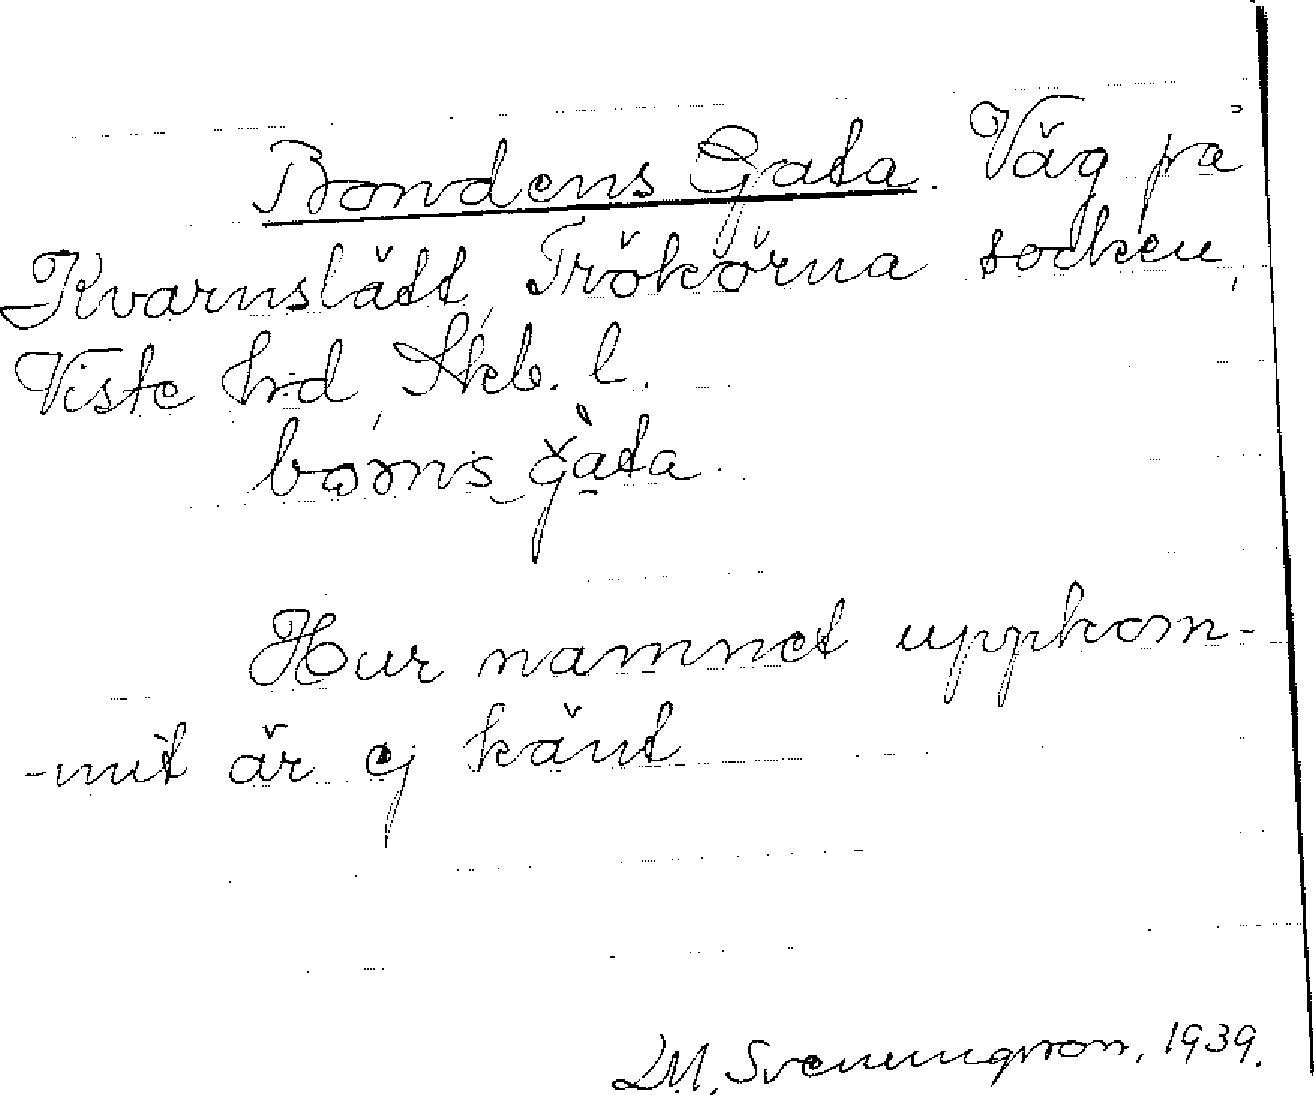 Bondens Gata. Väg på
Kvarnslätt, Trökörna socken,
Viste hrd, Skb. l.
Hur namnet uppkom-
-mit är ej känt.
D.M. Svenungsson, 1939.